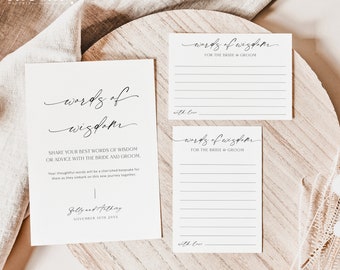 words of
wisdom
SHARE YOUR BEST WORDS OF WISDOM
OR ADVICE WITH THE BRIDE AND GROOM.
Your thoughtful words will be a cherished keepsake for
them as they embark on this new journey together.
and
words of wisdom
FOR THE BRIDE & GROOM
with love
words of wisdom
FOR THE BRIDE & GROOM
with love